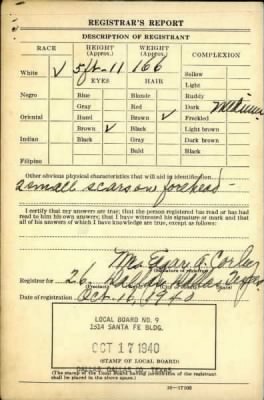 REGISTRAR'S REPORT
DESCRIPTION OF REGISTRANT
RACE
HEIGHT
(Approx.)
WEIGHT
(Approx.)
COMPLEXION
White ✓
5ft-11
166
Sallow
EYES
HAIR
Light
Negro
Blue
Blonde
Ruddy
Gray
Red
Dark
Oriental
Hazel
Brown ✓
Freckled
Brown ✓
Black
Light brown
Indian
Black
Gray
Dark brown
Bald
Black
Filipino
Other obvious physical characteristics that will aid in identification
2 small scars on forehead-
I certify that my answers are true; that the person registered has read or has had read to him his own answers; that I have witnessed his signature or mark and that all of his answers of which I have knowledge are true, except as follows:
Mrs Edgar A.
(Signature of registrar)
Registrar for 26 Dallas Dallas Texas
Date of registration Oct. 16, 1940
LOCAL BOARD NO. 9
1514 SANTA FE BLDG.
OCT 17 1940
(STAMP OF LOCAL BOARD)
DALLAS, DALLAS CO. TEXAS
(The stamp of the Local Board having jurisdiction of the registrant shall be placed in the above space.)